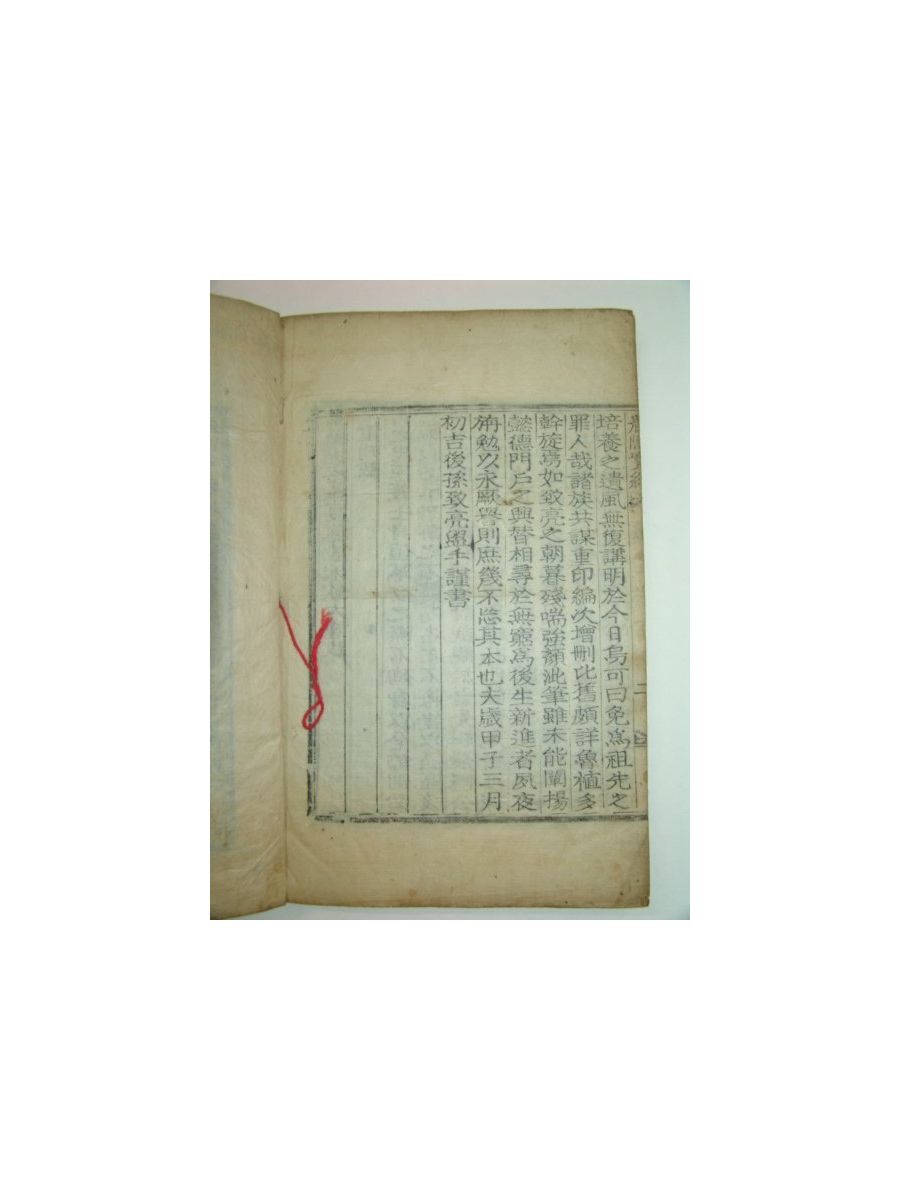 培養之遺風無復講明於今日烏可曰免爲祖先之
罪人哉諸族共謀重印編次增刪比舊頗詳魯植多
斡旋焉如致亮之朝暮殘喘強顏泚筆雖未能闡揚
懿德門戶之興替相尋於無窮爲後生新進者夙夜
勉以永厥譽則庶幾不悆其本也夫歲甲子三月
初吉後孫致亮盥手謹書
二